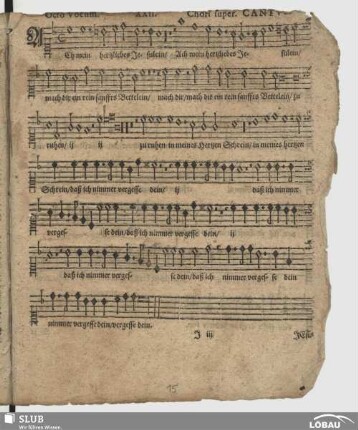 Octo vocum. XXII. Chori super. CANT
Ch mein hertzliebes Jesulein/ Ach mein hertzliebes Je- sulein/
mach dir ein rein sanfftes Bettelein/ mach dir/ mach dir ein rein sanfftes Bettelein/ zu
ruhen/ ij ij zu ruhen in meines Hertzen Schrein/ in meines hertzen
Schrein/ daß ich nimmer vergesse dein/ ij daß ich nimmer
verges- se dein/ daß ich nimmer vergesse dein/ ij
daß ich nimmer verges- se dein/ daß ich nimmer verges- se dein
nimmer vergesse dein/ vergesse dein.
J iij
15
SLUB
Wir führen Wissen.
LÖBAU